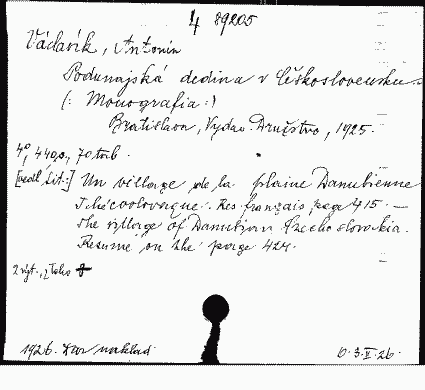 4 89205
Václavík, Antonín
Podunajská dedina v Československu
(: Monografia :)
Bratislava, Vydav. Družstvo, 1925.
4°, 440 s., 70 tab.
[vedl. tit.:] Un village de la plaine Danubienne
Tchécoslovaque. Res. français, page 415. —
The village of Danubian Czechoslovakia.
Resumé on the page 424.
2 výt.,
1926. Dar naklad.
6. 3. V. 26.